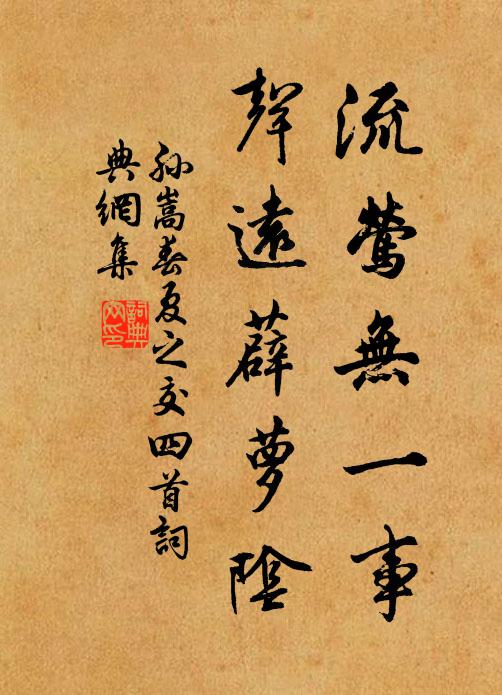 流鶯無一事
聲遠薜蘿陰
孙嵩春夏之交四首詞
典網集
詞典
网印